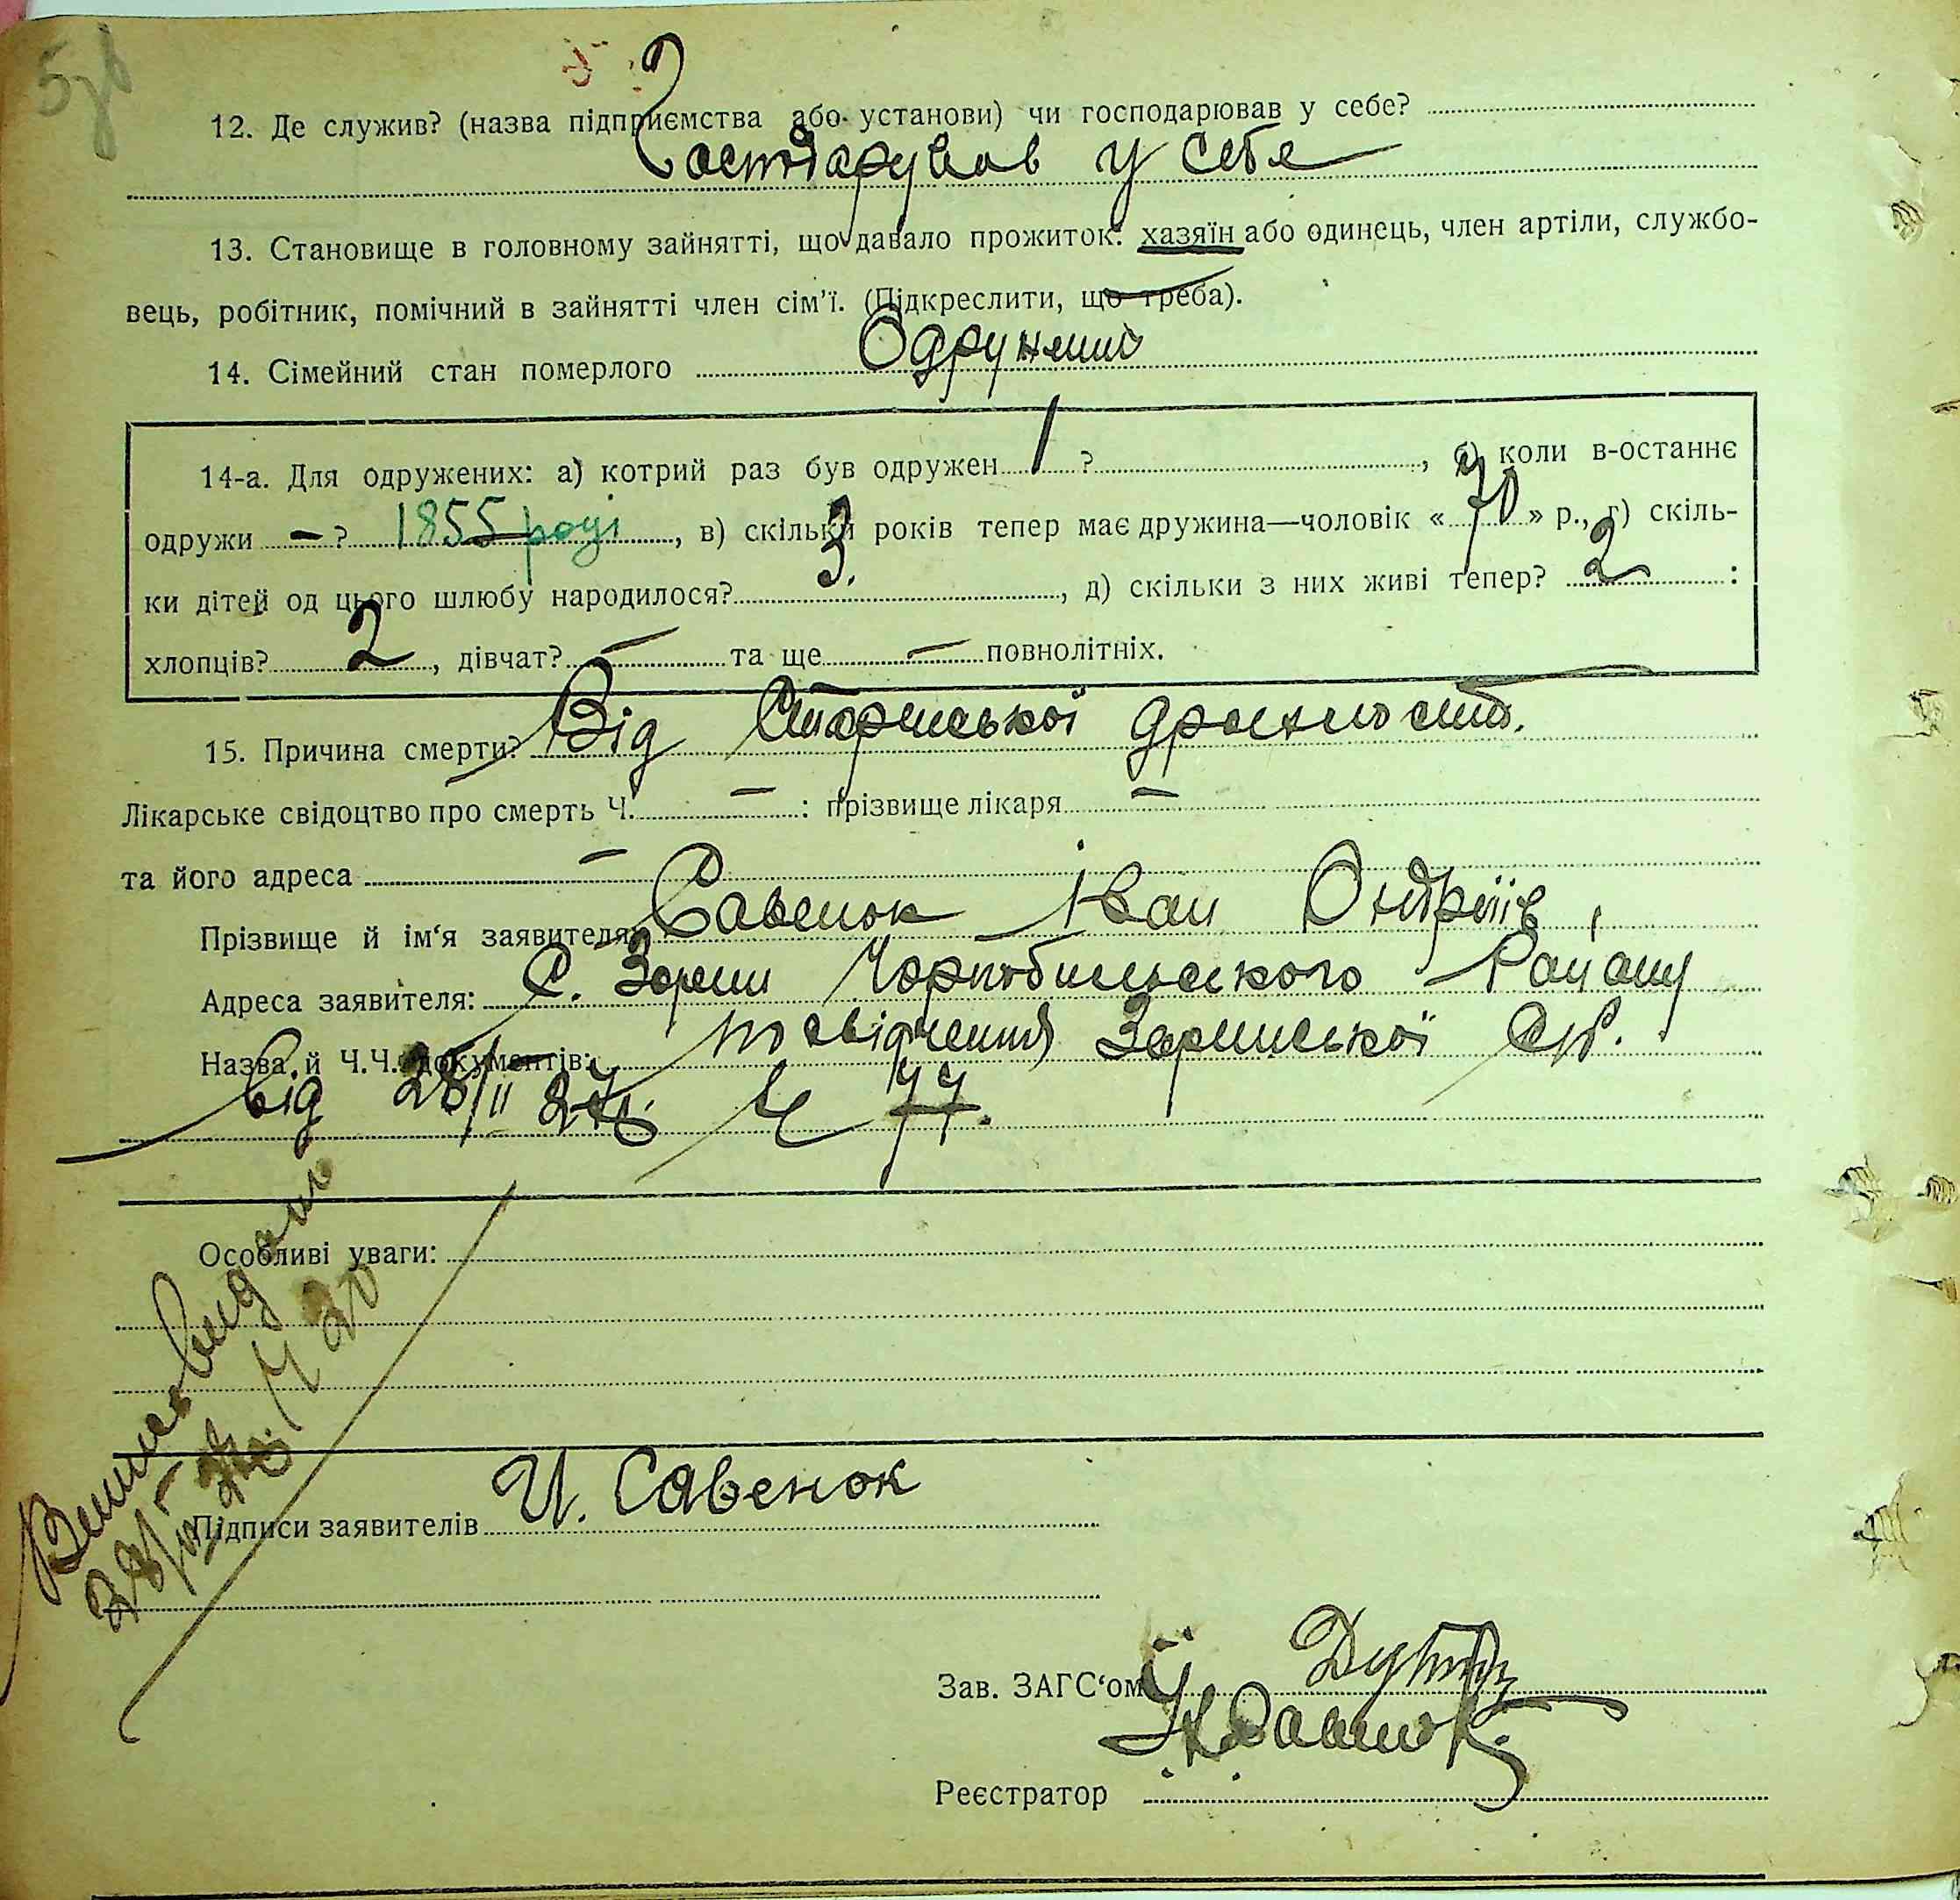 5зв
12. Де служив? (назва підприємства або установи) чи господарював у себе?
Господарував у себе
13. Становище в головному зайнятті, що давало прожиток: хазяїн або одинець, член артіли, службо-
вець, робітник, помічний в зайнятті член сім'ї. (Підкреслити, що треба).
14. Сімейний стан померлого Одружений
14-а. Для одружених: а) котрий раз був одружен 1 ?, б) коли в-останнє
одружи – ? 1855 році, в) скільки років тепер має дружина—чоловік «70» р., г) скіль-
ки дітей од цього шлюбу народилося? 3., д) скільки з них живі тепер? 2 :
хлопців? 2, дівчат? – та ще – повнолітніх.
15. Причина смерти? Від Старецької дряхлости.
Лікарське свідоцтво про смерть Ч. – : прізвище лікаря –
та його адреса –
Прізвище й ім'я заявителя: Савенок Іван Ондріїв,
Адреса заявителя: С. Зорин Чорнобильського Району
Назва й Ч.Ч. документів: посвідчення Зоринської С/Р.
Від 28/II 27р. Ч 77.
Особливі уваги:
Підписи заявителів И. Савенок
Зав. ЗАГС'ом
Реєстратор